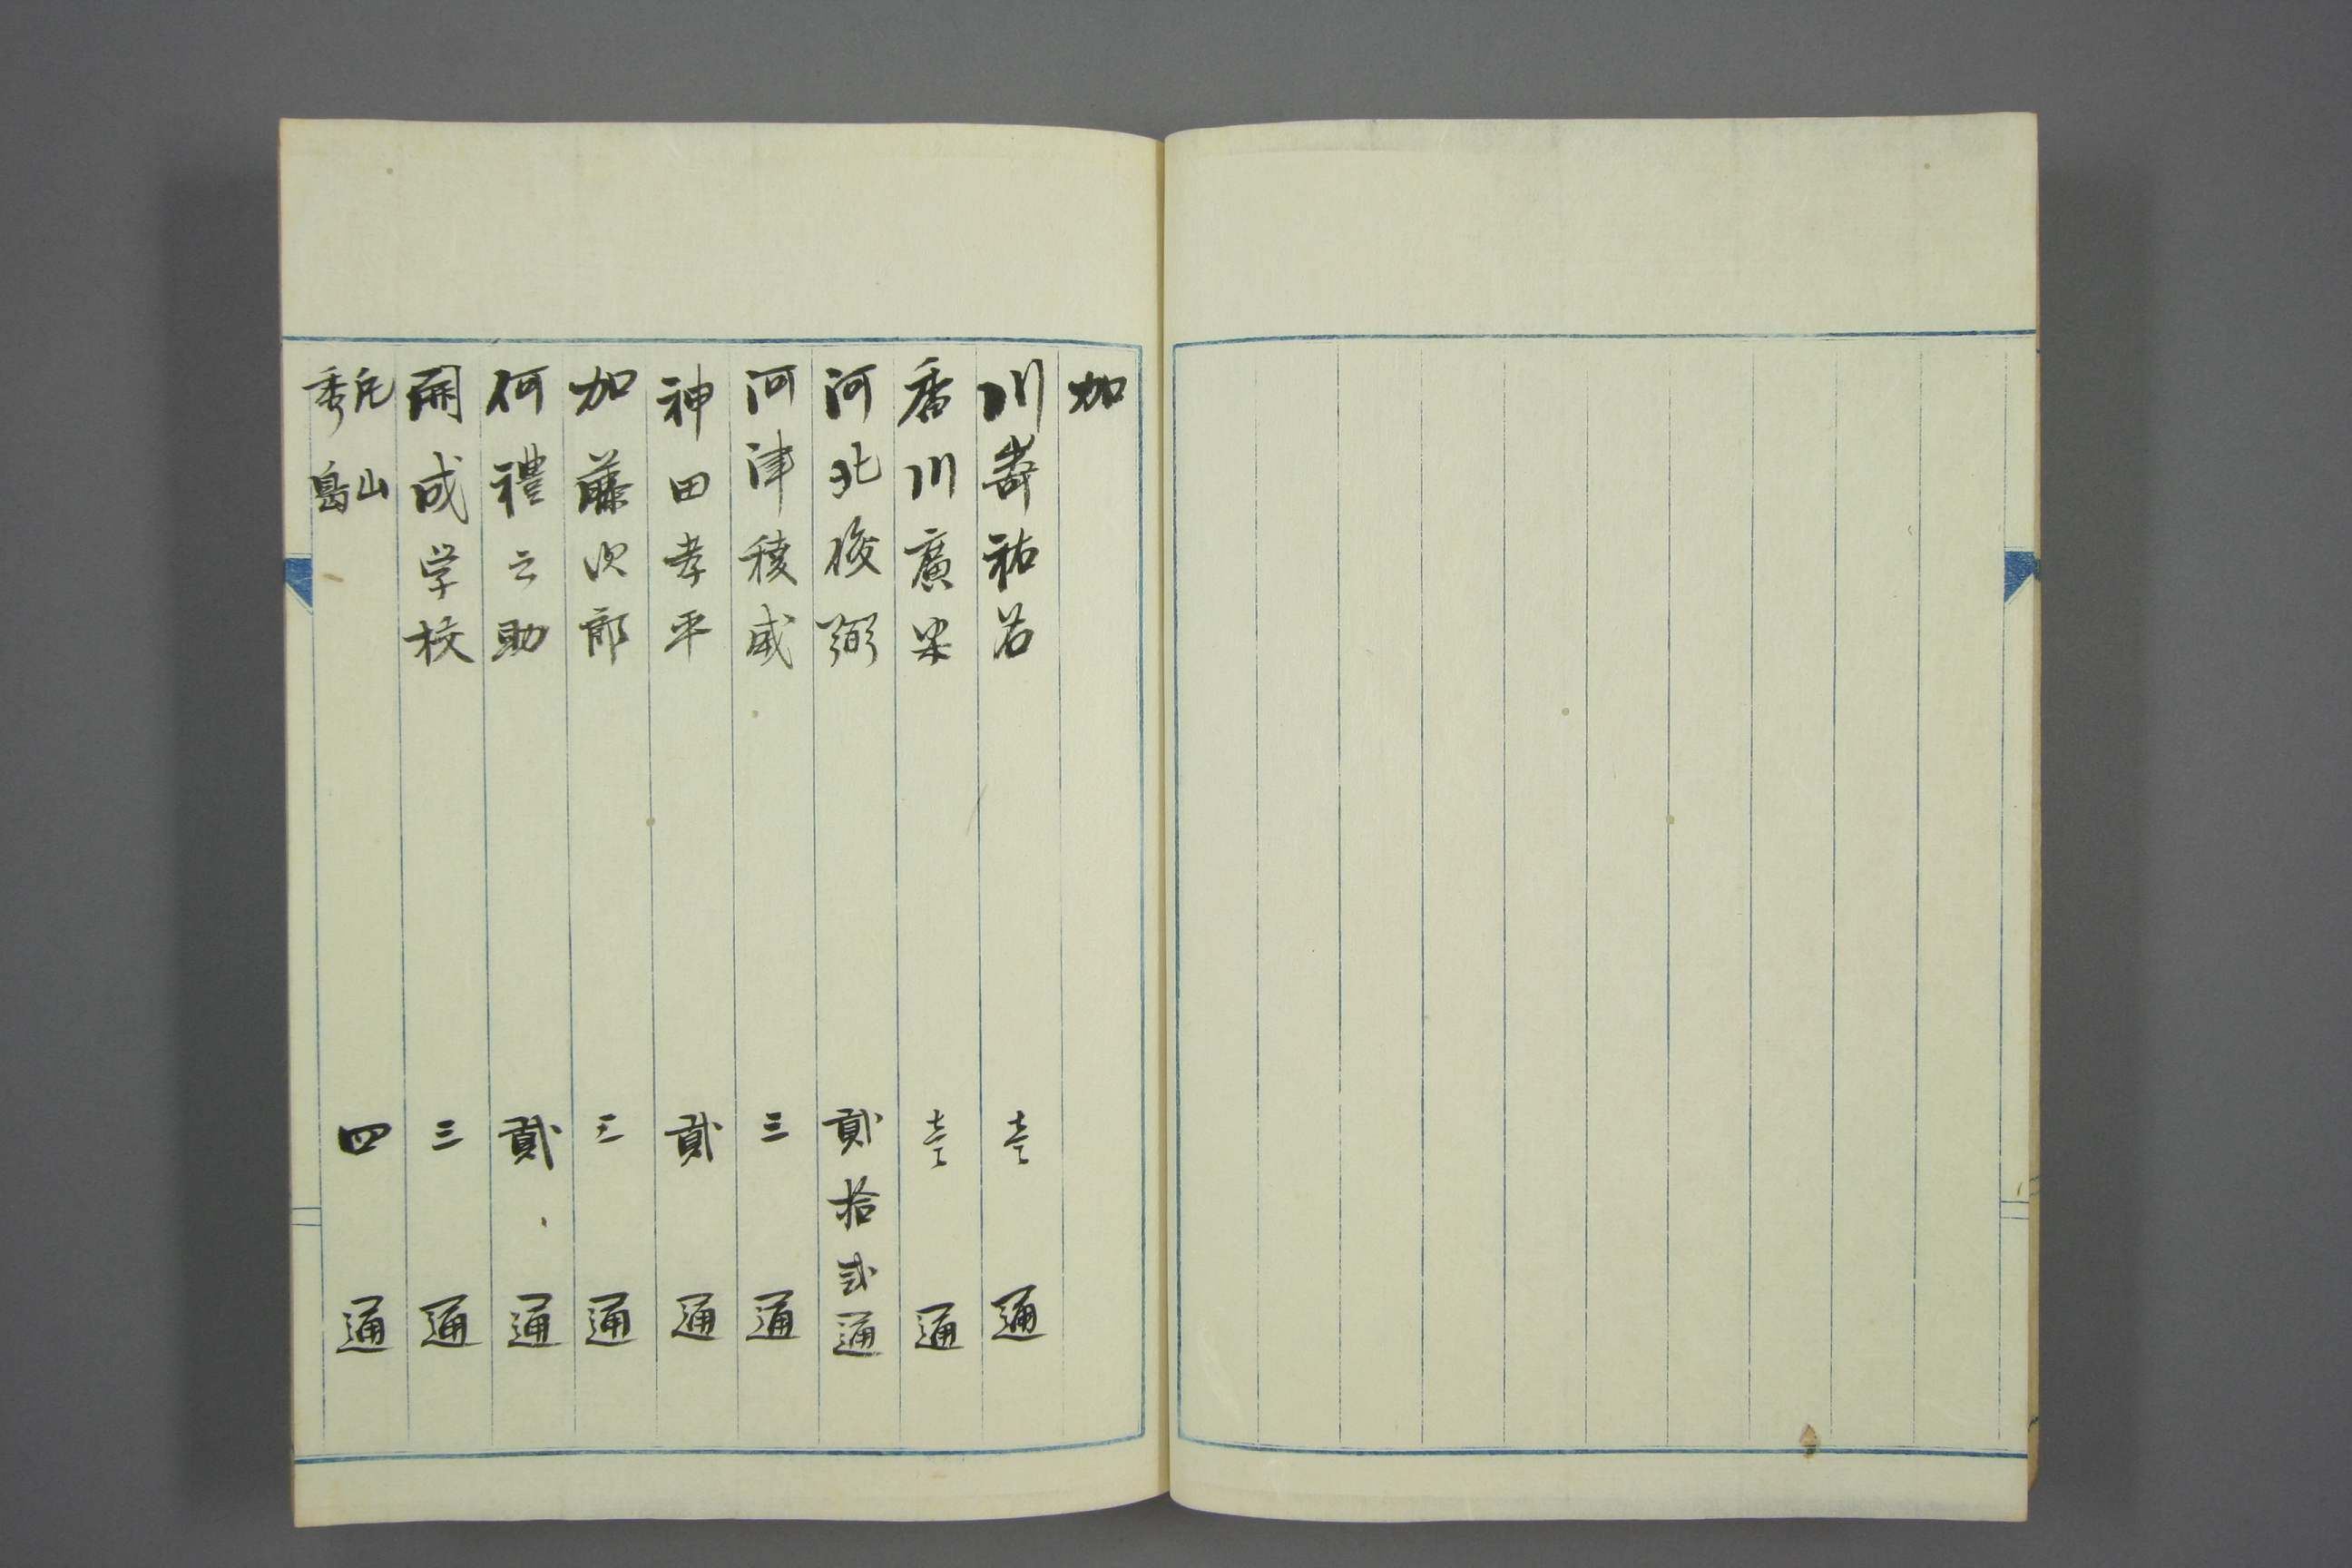 加
川嵜祐 壱通
香川廣 壱通
河北俊弼 貳拾弐通
河津稜威 三通
神田孝平 貳通
加藤次郎 三通
何禮之助 貳通
開成学校 三通
四通